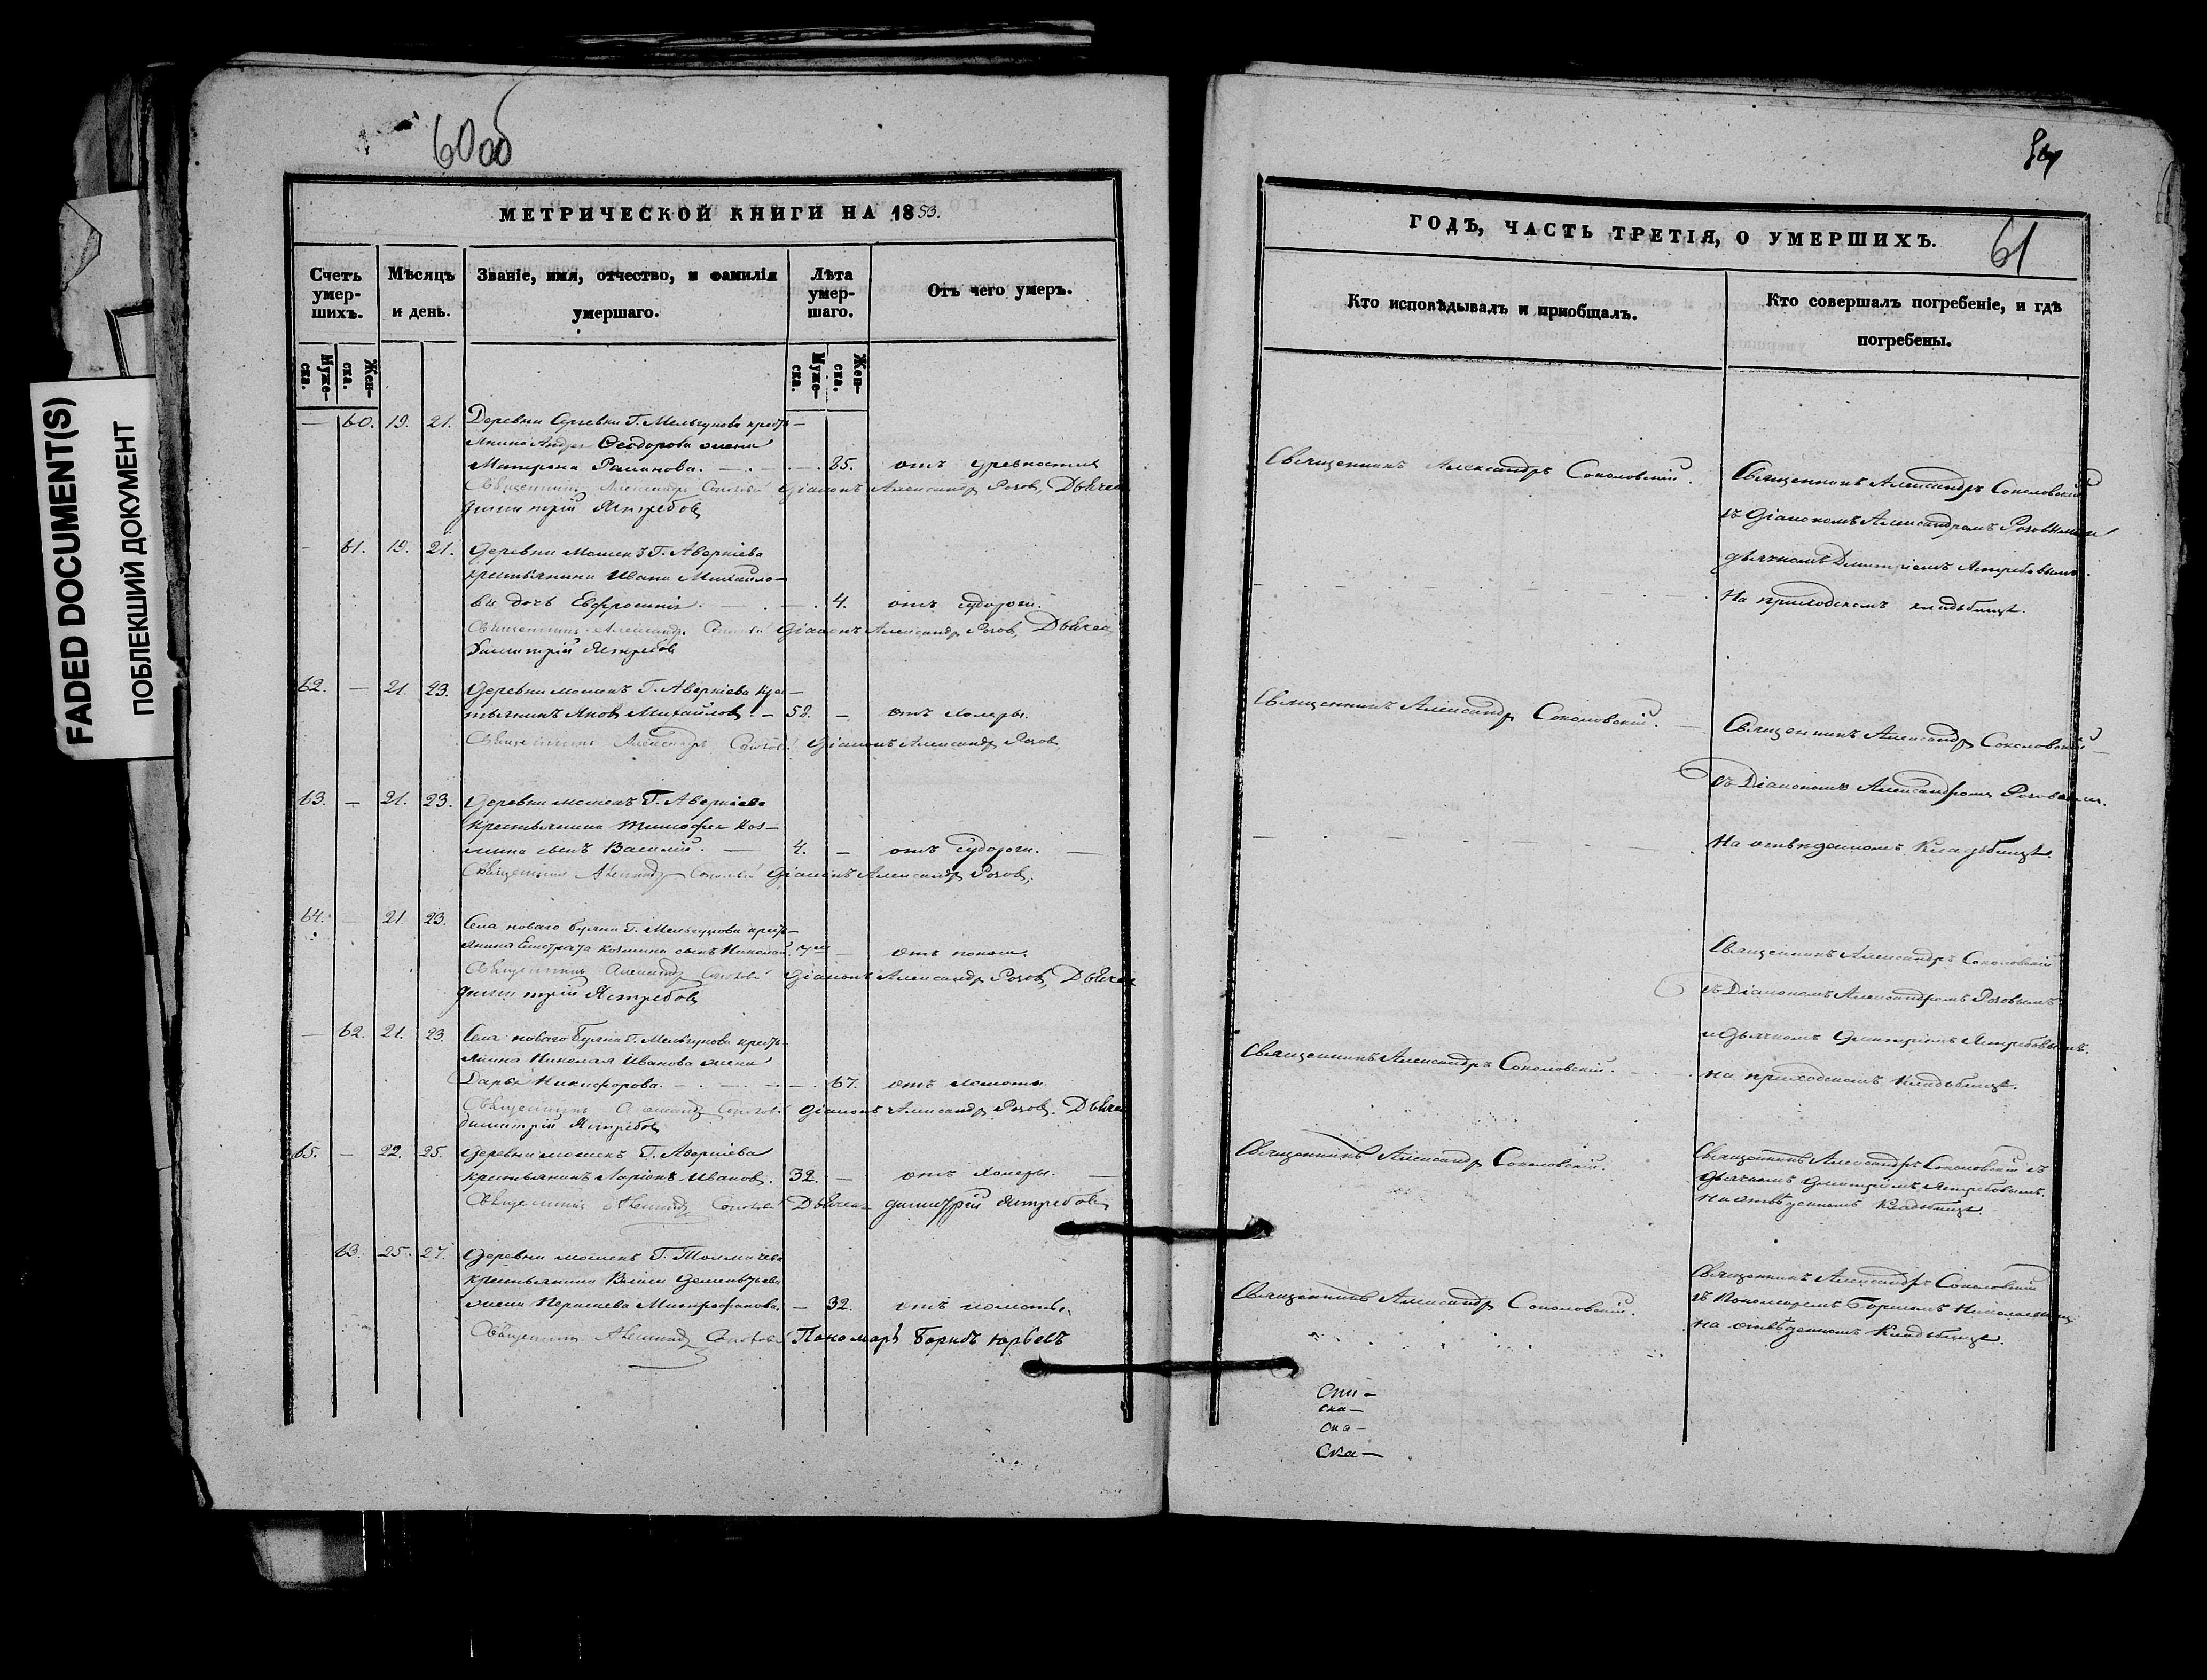 FADED DOCUMENT(S)
ПОБЛЕКШИЙ ДОКУМЕНТ
60 об
МЕТРИЧЕСКОЙ КНИГИ НА 1853.
Счетъ умер-шихъ.
Муже-ска.
Жен-ска.
Мѣсяцъ и день.
Званіе, имя, отчество, и фамилія умершаго.
Лѣта умер-шаго.
Муже-ска.
Жен-ска.
Отъ чего умеръ.
— 60. 19. 21. Деревни Сергевки Г. Мельгунова кресть-
янина Андре Ѳеодорова жена
Матрона Романова. — 85. отъ древности
Священникъ Александръ Діаконъ Александръ Розовъ, Дьячекъ
Димитрій Ястребовъ
— 61. 19. 21. Деревни Мошекъ Г. Аверкіева
крестьянина Ивана Михайло-
ва дочь Евфросинія. — 4. отъ судороги.
Священникъ Александръ Діаконъ Александръ Розовъ, Дьячекъ
Димитрій Ястребовъ
62. — 21. 23. Деревни Мошекъ Г. Аверкіева крес-
тьянинъ Яковъ Михайловъ. — 52. — отъ холеры.
Священникъ Александръ Діаконъ Александръ Розовъ
63. — 21. 23. Деревни Мошекъ Г. Аверкіева
крестьянина Тимофея Коз-
мина сынъ Василій. — 4. — отъ судороги. —
Священникъ Александръ Діаконъ Александръ Розовъ.
64. — 21 23. Села новаго Буяна Г. Мельгунова кресть-
янина Евстрата Козмина сынъ Николай. — отъ поноса.
Священникъ Александръ Діаконъ Александръ Розовъ, Дьячекъ
Димитрій Ястребовъ
— 62. 21. 23. Села новаго Буяна Г. Мельгунова кресть-
янина Николая Иванова жена
Дарья Никифорова. — 67. отъ ломоты.
Священникъ Александръ Діаконъ Александръ Розовъ. Дьячекъ
Димитрій Ястребовъ
65. — 22. 25. Деревни Мошекъ Г. Аверкіева
крестьянинъ Ларіонъ Ивановъ. 32. — отъ холеры. —
Священникъ Александръ Дьячекъ Димитрій Ястребовъ
63. 25. 27. Деревни Мошекъ Г. Толмачева
крестьянина
жена Митрофанова. — 32. отъ ломоты.
Священникъ Александръ Пономарь Борисъ Юрьевъ
61
ГОДЪ, ЧАСТЬ ТРЕТІЯ, О УМЕРШИХЪ.
Кто исповѣдывалъ и пріобщалъ.
Кто совершалъ погребеніе, и гдѣ погребены.
Священникъ Александръ Соколовскій.
Священникъ Александръ Соколовскій
съ Діакономъ Александромъ Розовымъ и
дьячкомъ Димитріемъ Ястребовымъ.
На приходскомъ кладбищѣ.
Священникъ Александръ Соколовскій.
Священникъ Александръ Соколовскій
съ Діакономъ Александромъ Розовымъ.
На отведенномъ Кладбищѣ.
Священникъ Александръ Соколовскій
съ Діакономъ Александромъ Розовымъ
и Дьячкомъ Димитріемъ Ястребовымъ.
на приходскомъ Кладбищѣ.
Священникъ Александръ Соколовскій.
Священникъ Александръ Соколовскій.
Священникъ Александръ Соколовскій съ
Дьячкомъ Димитріемъ Ястребовымъ.
на отведенномъ Кладбищѣ.
Священникъ Александръ Соколовскій.
Священникъ Александръ Соколовскій
съ Пономаремъ Борисомъ
на отведенномъ Кладбищѣ.
Ска—